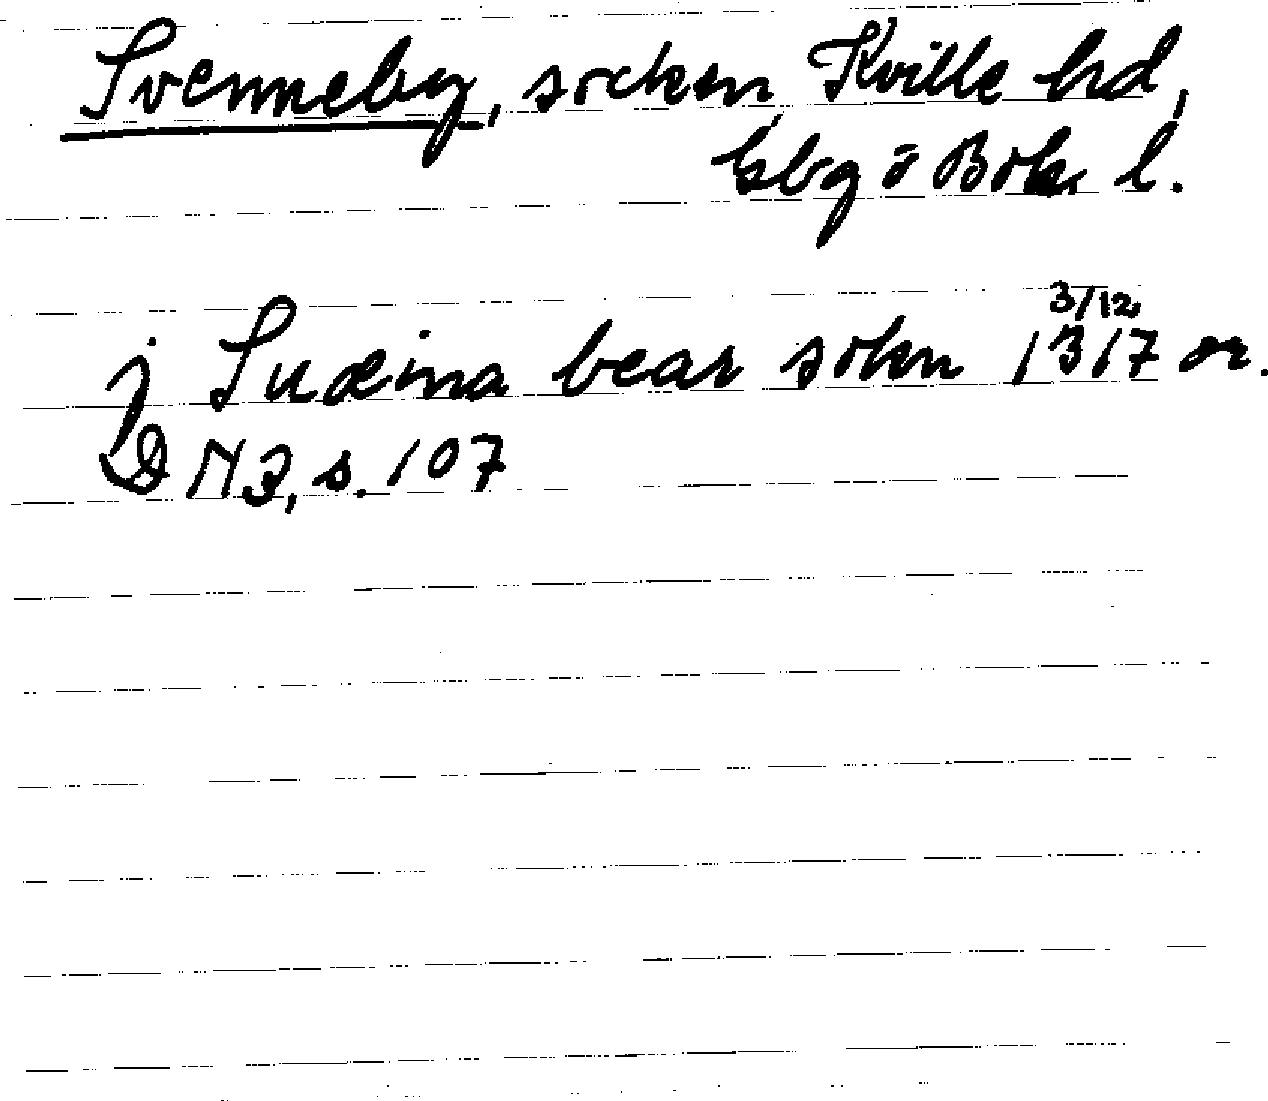 Svenneby, socken Kville hd,
Gbg o Boh. l.
3/12
j Suæina bear sokn 1317 or.
DN 3, s. 107